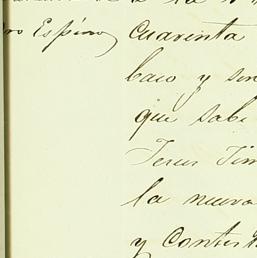 ro Espino Cuarenta
baco y sin
que sabe
Jesus Jim
la nueva
y Contest